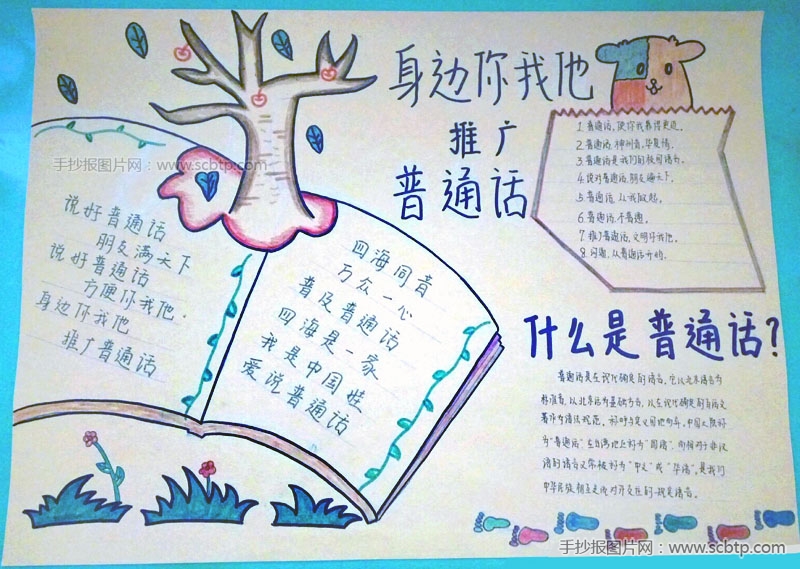 身边你我他
推广
普通话
手抄报图片网：www.scbtp.com
说好普通话
朋友满天下
说好普通话
方便你我他.
身边你我他
推广普通话
四海同音
万众一心
普及普通话
四海是一家
我是中国娃
爱说普通话
1. 普通话，使你我靠得更近。
2. 普通话，神州音，华夏情。
3. 普通话是我们的校园语言。
4. 说好普通话，朋友遍天下。
5. 普通话，从我做起。
6. 普通话，不普通。
7. 推广普通话，文明你我他。
8. 问题，从普通话开始。
什么是普通话？
普通话是
它以北京语音为
标准音，以北京话为基础方言，以
著作为语法规范。
为"普通话"，在台湾地区称为"国语"，
"中文"或"华语"，是我们
中华民族
手抄报图片网：www.scbtp.com